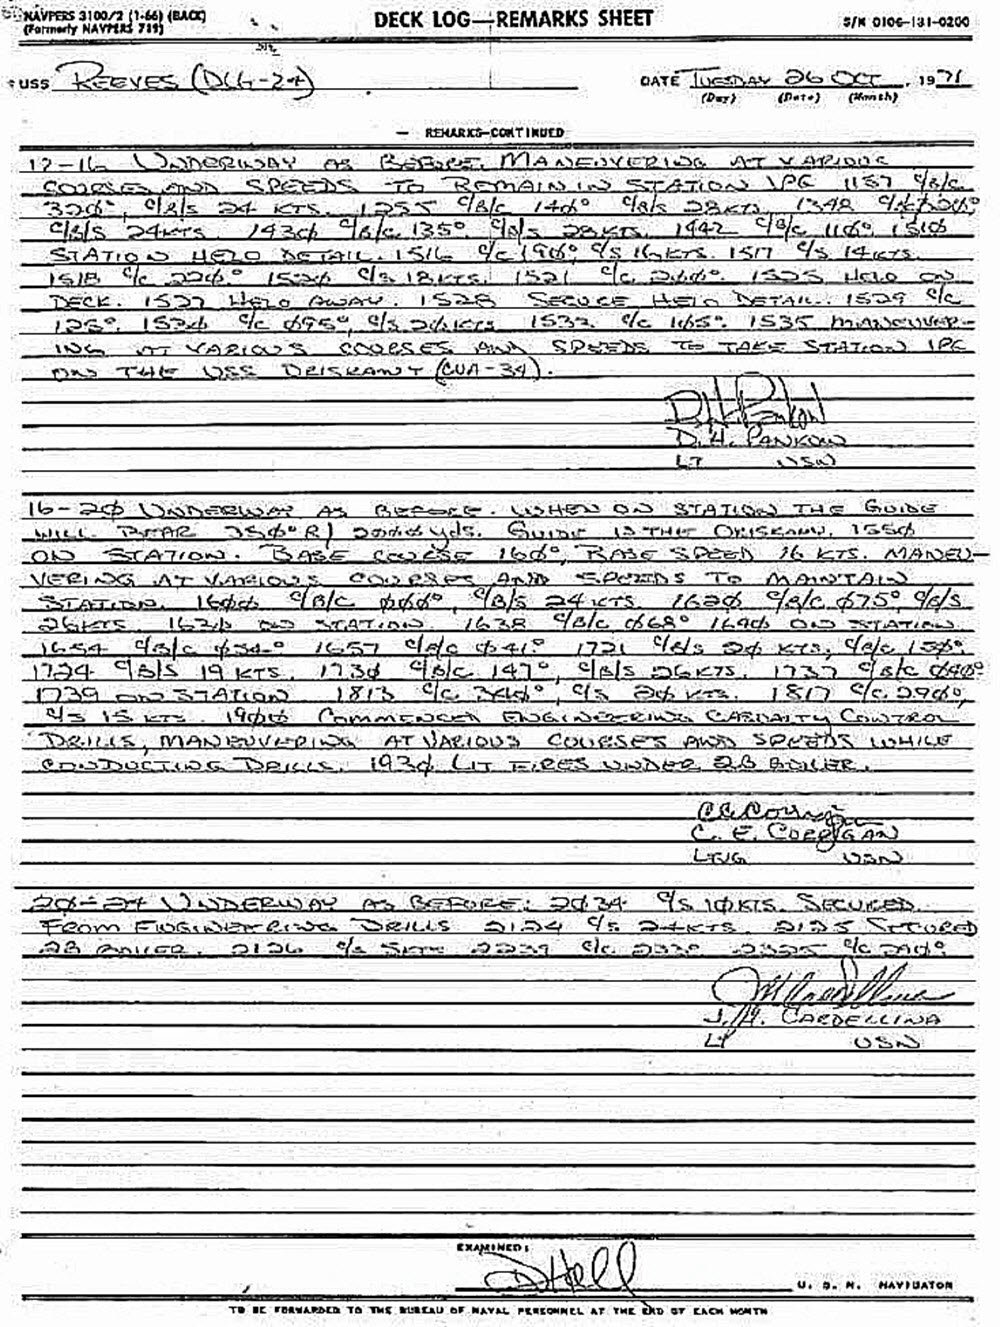 NAVPERS 3100/2 (1-66) (BACK)
(Formerly NAVPERS 719)
DECK LOG—REMARKS SHEET
S/N 0106-131-0200
USS REEVES (DLG-24)
DATE TUESDAY 26 OCT, 1971
(Day) (Date) (Month)
— REMARKS—CONTINUED
12-16 UNDERWAY AS BEFORE. MANEUVERING AT VARIOUS
COURSES AND SPEEDS TO REMAIN IN STATION IPG 1157 C/B/C
320°, C/B/S 24 KTS. 1255 C/B/C 140° C/B/S 28 KTS. 1348
C/B/S 24 KTS. 1430 C/B/C 135° C/B/S 28 KTS. 1442 C/B/C 110° 1510
STATION HELO DETAIL. 1516 C/C 190° C/S 16 KTS. 1517 C/S 14 KTS.
1518 C/C 220° 1520 C/S 18 KTS. 1521 C/C 200°. 1525 HELO ON
DECK. 1527 HELO AWAY. 1528 SECURE HELO DETAIL. 1529 C/C
125°. 1530 C/C 095°, C/S 20 KTS 1532 C/C 165°. 1535 MANEUVER-
ING AT VARIOUS COURSES AND SPEEDS TO TAKE STATION IPG
ON THE USS ORISKANY (CVA-34).
D. H. PANKOW
LT USN
16-20 UNDERWAY AS BEFORE. WHEN ON STATION THE GUIDE
WILL BEAR 350°R) 2000 Yds. GUIDE IS THE ORISKANY. 1550
ON STATION. BASE COURSE 160°, BASE SPEED 16 KTS. MANEU-
VERING AT VARIOUS COURSES AND SPEEDS TO MAINTAIN
STATION. 1600 C/B/C 060°, C/B/S 24 KTS. 1620 C/B/C 075° C/B/S
26 KTS. 1630 ON STATION. 1638 C/B/C 068° 1640 ON STATION.
1654 C/B/C 054° 1657 C/B/C 041° 1721 C/B/S 20 KTS, C/B/C 150°.
1724 C/B/S 19 KTS. 1730 C/B/C 147°, C/B/S 26 KTS. 1737 C/B/C 040°
1739 ON STATION 1813 C/C 300°, C/S 20 KTS. 1817 C/C 290°,
C/S 15 KTS. 1900 COMMENCED ENGINEERING CASUALTY CONTROL
DRILLS, MANEUVERING AT VARIOUS COURSES AND SPEEDS WHILE
CONDUCTING DRILLS. 1930 LIT FIRES UNDER 2B BOILER.
C. E. CORRIGAN
LTJG USN
20-24 UNDERWAY AS BEFORE. 2034 C/S 10 KTS. SECURED
FROM ENGINEERING DRILLS 2124 C/S 24 KTS. 2125 SECURED
2B BOILER. 2126 C/S 2239 C/C 2325 C/C
J. M. CARDELLINA
LT USN
EXAMINED:
D Hall
U. S. N. NAVIGATOR
TO BE FORWARDED TO THE BUREAU OF NAVAL PERSONNEL AT THE END OF EACH MONTH